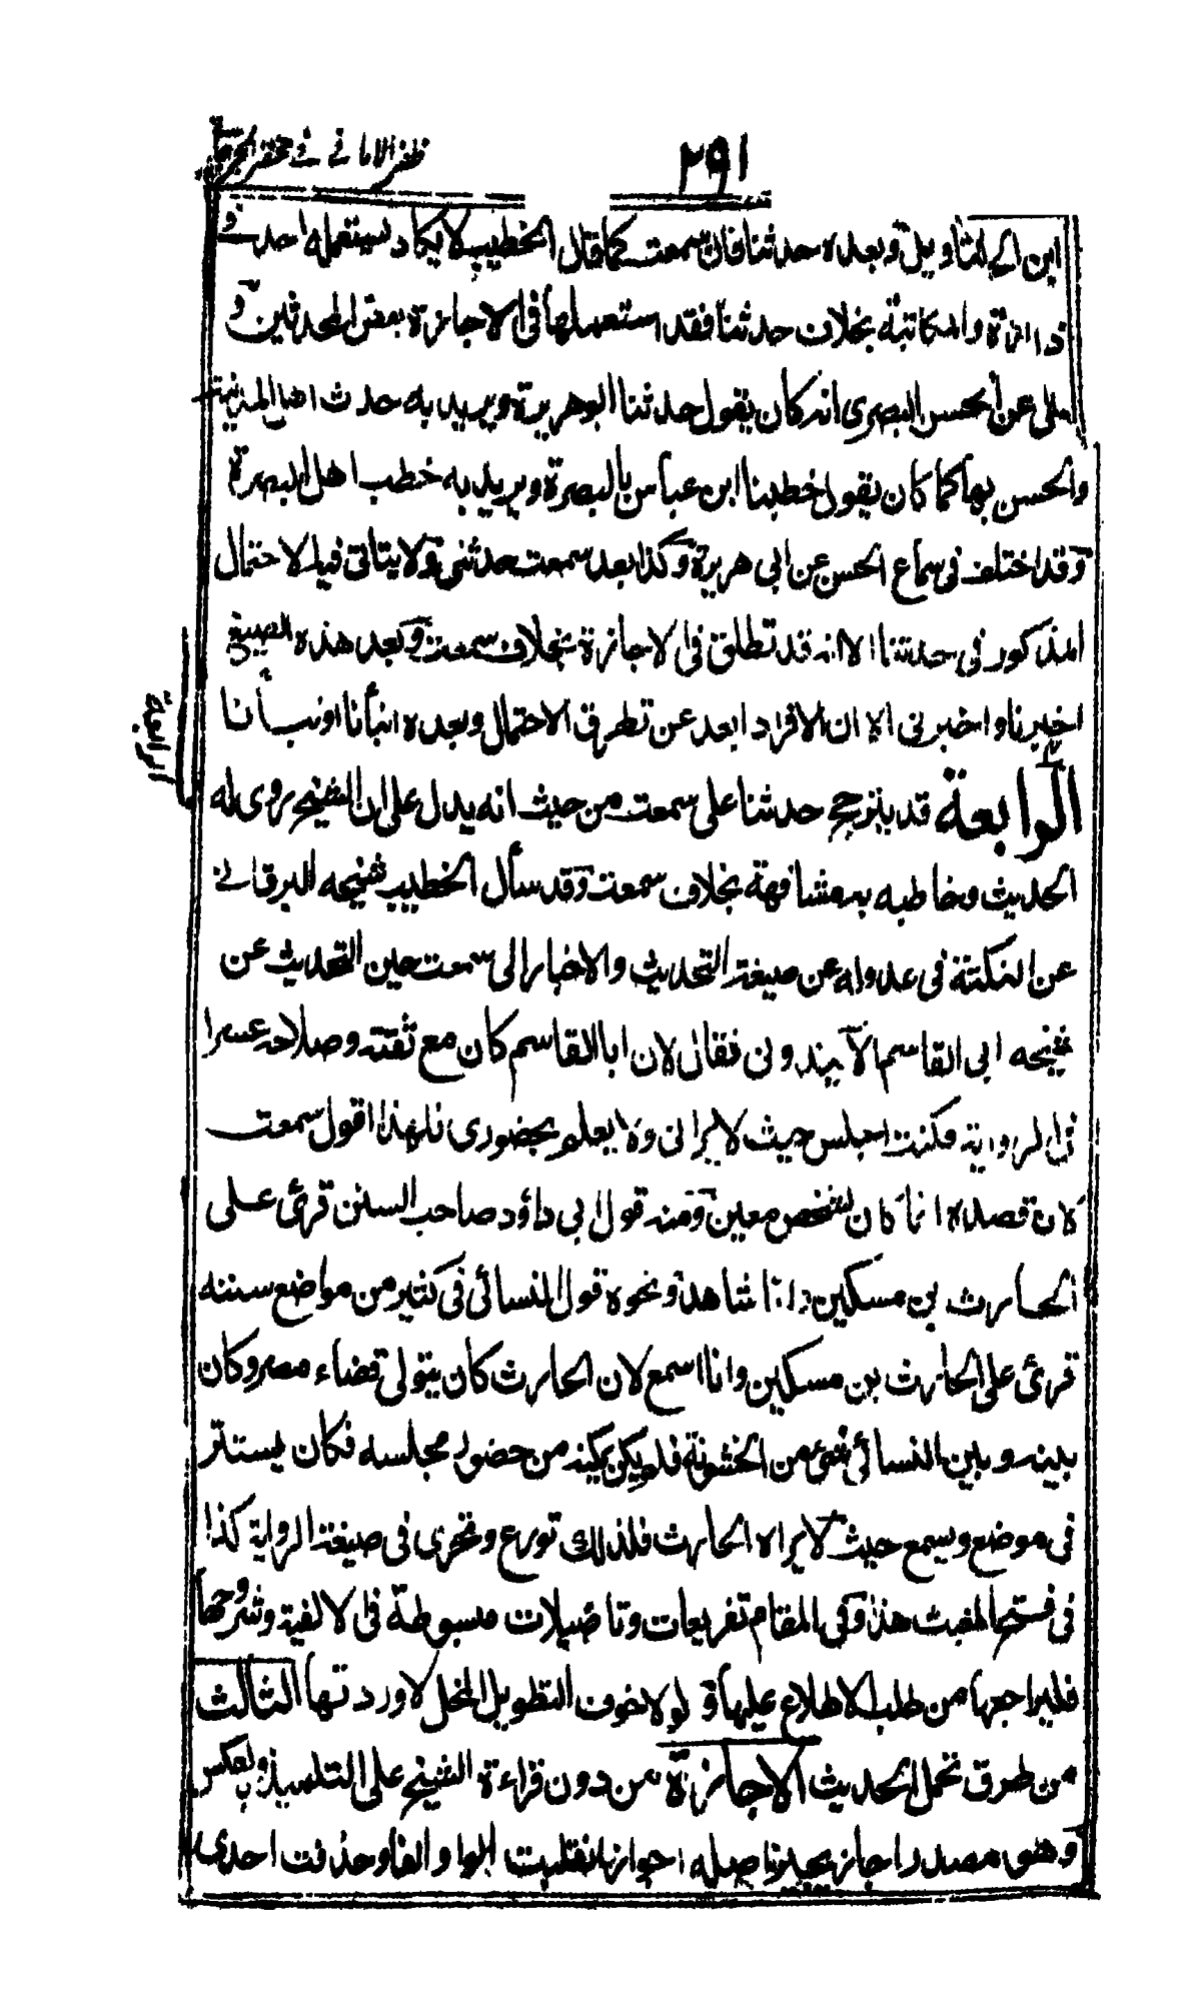 ٢٩١
ظفر الاماني في مختصر الجرجاني
ابن الى التاويل وبعده حدثنا فان سمعت كما قال الخطيب لا يكاد يستعمله احد في
والمكاتبة بخلاف حدثنا فقد استعملها في الاجازة بعض المحدثين و
عن الحسن البصرى انه كان يقول حدثنا ابو هريرة ويريد به حدث اهل المدينة
والحسن بها كما كان يقول خطبنا ابن عباس بالبصرة ويريد به خطب اهل البصرة
وقد اختلف فى سماع الحسن عن ابى هريرة وكذا بعد سمعت حدثنى ولا يتاتى فيه الاحتمال
المذكور فى حدثنا الا انه قد تطلق فى الاجازة بخلاف سمعت وبعد هذه الصيغ
اخبرنا واخبرنى الا ان الافراد ابعد عن تطرق الاحتمال وبعده انبأنا او نبأنا
الرابعة
الرابعة قد يترجح حدثنا على سمعت من حيث انه يدل على ان الشيخ روى له
الحديث وخاطبه به مشافهة بخلاف سمعت وقد سأل الخطيب شيخه البرقانى
عن النكتة فى عدوله عن صيغة التحديث والاخبار الى سمعت حين التحديث عن
شيخه ابى القاسم الآبندونى فقال لان ابا القاسم كان مع ثقته وصلاحه عسرا
فى الرواية فكنت اجلس حيث لا يرانى ولا يعلم بحضورى فلهذا اقول سمعت
لان قصده انما كان لشخص معين ومنه قول ابى داؤد صاحب السنن قرئ على
الحارث بن مسكين وانا شاهد ونحوه قول النسائى فى كثير من مواضع سننه
قرئ على الحارث بن مسكين وانا اسمع لان الحارث كان يتولى قضاء مصر وكان
بينه وبين النسائى شئ من الخشونة فلم يكن يمكنه من حضور مجلسه فكان يستتر
فى موضع ويسمع حيث لا يراه الحارث فلذلك تورع وتحرى فى صيغة الرواية كذا
فى فتح المغيث هذا وفى المقام تفريعات وتاصيلات مبسوطة فى الالفية وشروحها
فليراجعها من طلب الاطلاع عليها و لولا خوف التطويل المخل لاوردتها الثالث
من طرق تحمل الحديث الاجازة من دون قراءة الشيخ على التلميذ وبالعكس
وهى مصدر اجاز يجيز اصله اجوازا فقلبت الواو الفا وحذفت احدى